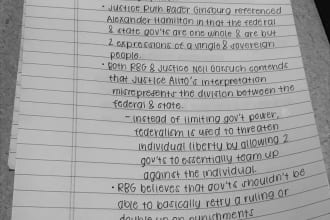 • Justice Ruth Bader Ginsburg referenced
Alexander Hamilton in that the federal
& state gov'ts are one whole & are but
2 expressions of a single & sovereign
people.
• Both RBG & Justice Neil Gorsuch contends
that Justice Alito's interpretation
misrepresents the division between the
federal & state.
- instead of limiting gov't power,
federalism is used to threaten
individual liberty by allowing 2
gov'ts to essentially team up
against the individual.
• RBG believes that gov'ts shouldn't be
able to basically retry a ruling or
double up on punishments